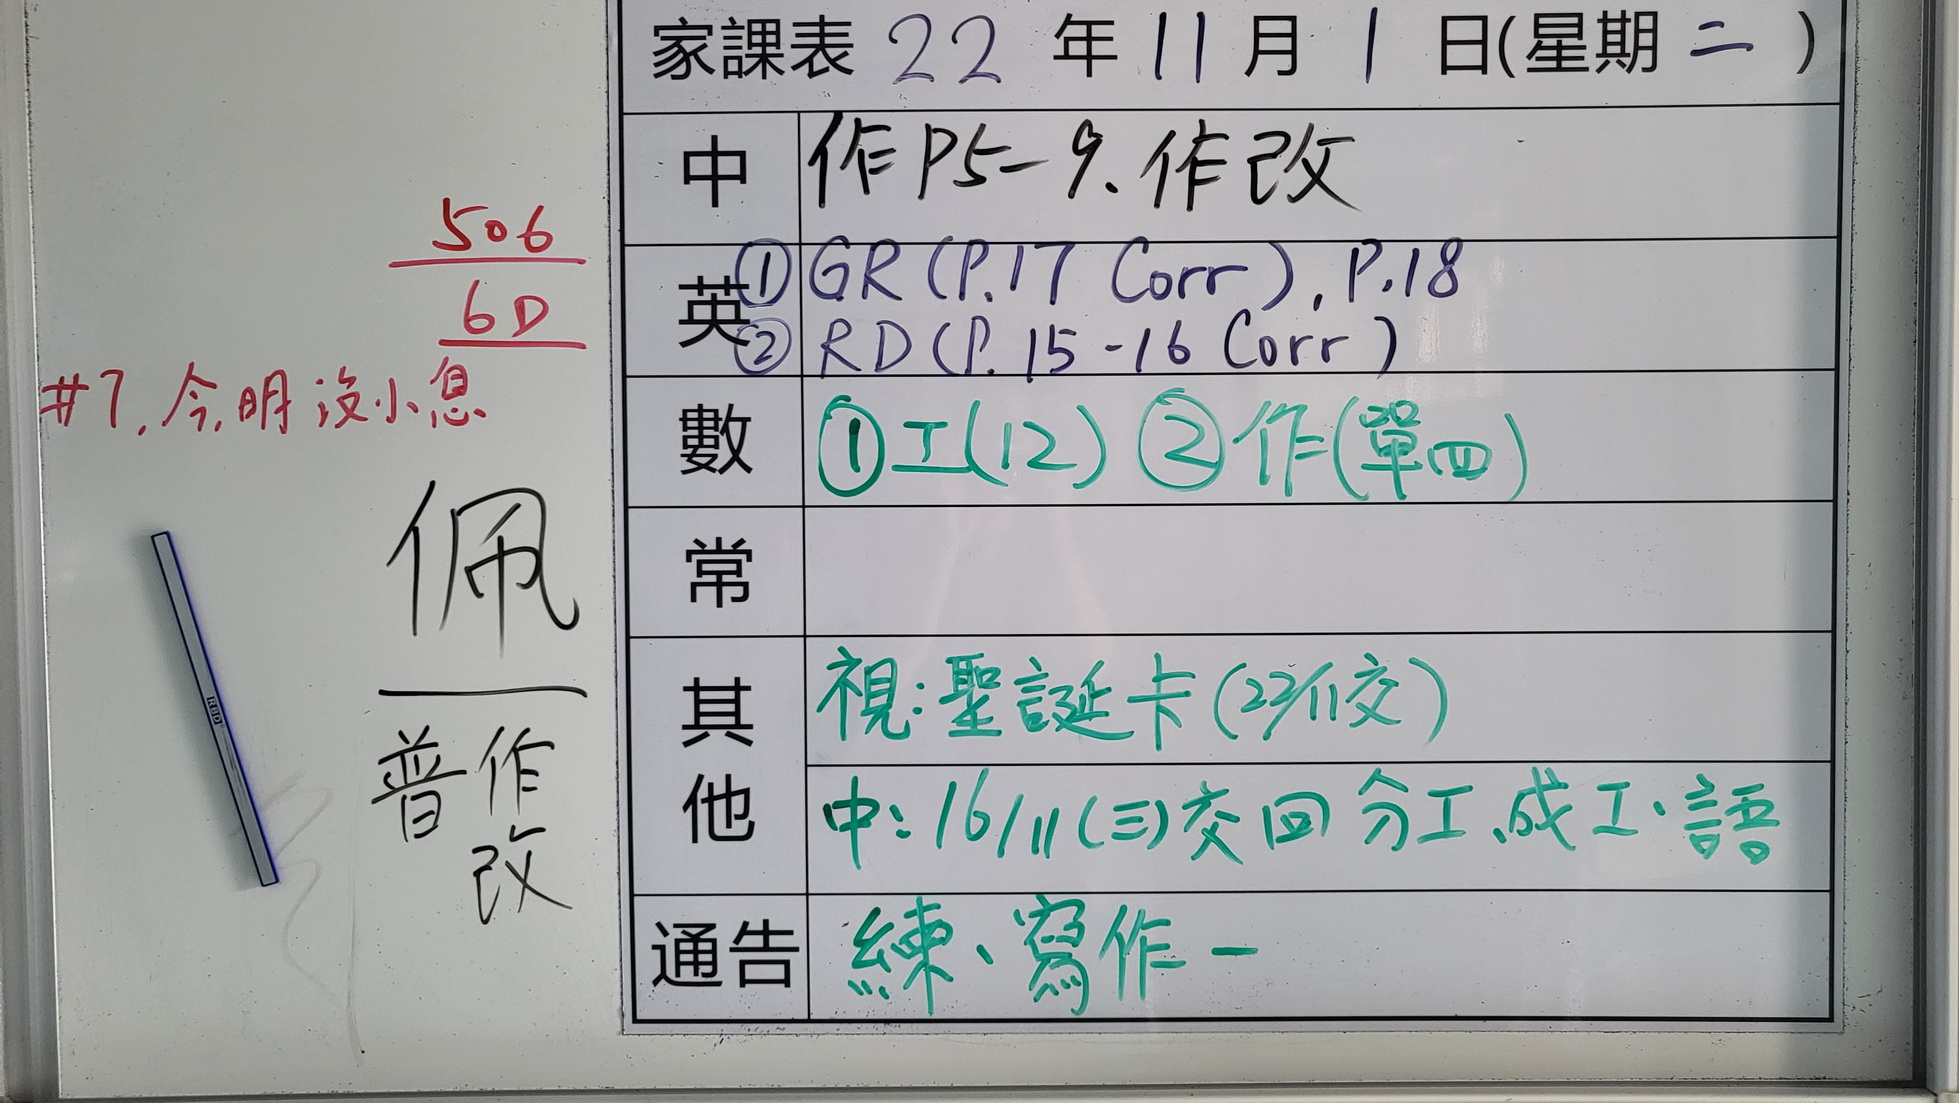 家課表 22 年 11 月 1 日(星期 二 )
中 作P5-9、作改
英 ①GR(P.17 Corr), P.18
②RD(P.15-16 Corr)
數 ①工(12) ②作(單四)
常
其他 視:聖誕卡(22/11交)
中:16/11(三)交回分工、成工、語
通告 練、寫作一
506
6D
#7.今,明沒小息
佩
普作
改